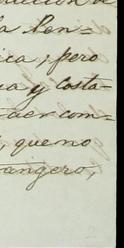 la Pen=
ica, pero
ua y costa-
taer com-
, que no
tangero,